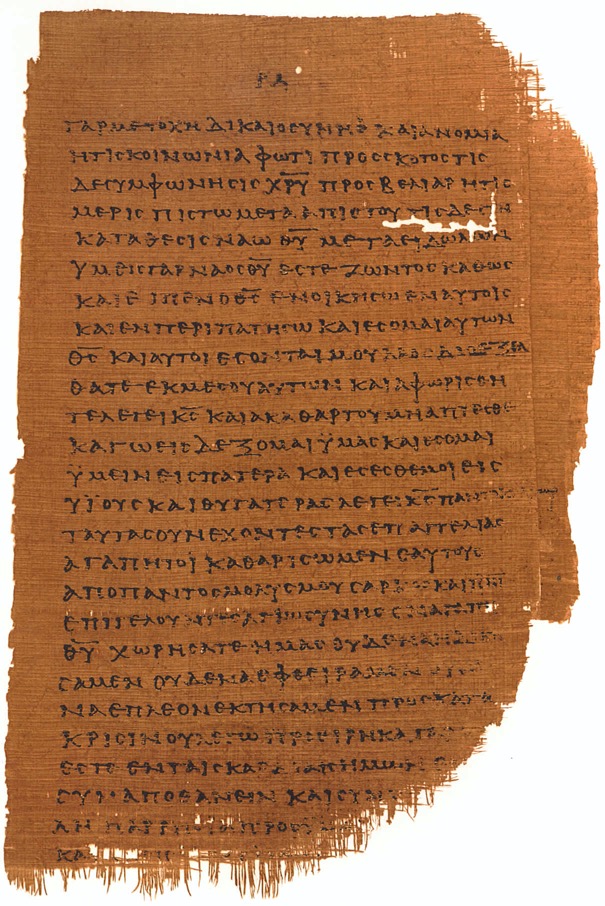 ΡΛ
ΓΑΡ ΜΕΤΟΧΗ ΔΙΚΑΙΟΣΥΝΗ ΚΑΙ ΑΝΟΜΙΑ
Η ΤΙΣ ΚΟΙΝΩΝΙΑ ΦΩΤΙ ΠΡΟΣ ΣΚΟΤΟΣ ΤΙΣ
ΔΕ ΣΥΜΦΩΝΗΣΙΣ ΧΡΥ ΠΡΟΣ ΒΕΛΙΑΡ Η ΤΙΣ
ΜΕΡΙΣ ΠΙΣΤΩ ΜΕΤΑ ΑΠΙΣΤΟΥ ΤΙΣ ΔΕ ΣΥΝ
ΚΑΤΑΘΕΣΙΣ ΝΑΩ ΘΥ ΜΕΤΑ ΕΙΔΩΛΩΝ
ΥΜΕΙΣ ΓΑΡ ΝΑΟΣ ΘΥ ΕΣΤΕ ΖΩΝΤΟΣ ΚΑΘΩΣ
ΚΑΙ ΕΙΠΕΝ Ο ΘΣ ΕΝΟΙΚΗΣΩ ΕΝ ΑΥΤΟΙΣ
ΚΑΙ ΕΝΠΕΡΙΠΑΤΗΣΩ ΚΑΙ ΕΣΟΜΑΙ ΑΥΤΩΝ
ΘΣ ΚΑΙ ΑΥΤΟΙ ΕΣΟΝΤΑΙ ΜΟΥ ΛΑΟΣ ΔΙΟ ΕΞΕΛ
ΘΑΤΕ ΕΚ ΜΕΣΟΥ ΑΥΤΩΝ ΚΑΙ ΑΦΩΡΙΣΘΗ
ΤΕ ΛΕΓΕΙ ΚΣ ΚΑΙ ΑΚΑΘΑΡΤΟΥ ΜΗ ΑΠΤΕΣΘΕ
ΚΑΓΩ ΕΙΣΔΕΞΟΜΑΙ ΥΜΑΣ ΚΑΙ ΕΣΟΜΑΙ
ΥΜΕΙΝ ΕΙΣ ΠΑΤΕΡΑ ΚΑΙ ΕΣΕΣΘΕ ΜΟΙ ΕΙΣ
ΥΙΟΥΣ ΚΑΙ ΘΥΓΑΤΕΡΑΣ ΛΕΓΕΙ ΚΣ ΠΑΝΤ
ΤΑΥΤΑΣ ΟΥΝ ΕΧΟΝΤΕΣ ΤΑΣ ΕΠΑΓΓΕΛΙΑΣ
ΑΓΑΠΗΤΟΙ ΚΑΘΑΡΙΣΩΜΕΝ ΕΑΥΤΟΥΣ
ΑΠΟ ΠΑΝΤΟΣ ΜΟΛΥΣΜΟΥ ΣΑΡΚΟΣ ΚΑΙ ΠΝΙ
ΕΠΙΤΕΛΟΥΝΤΕΣ ΑΓΙΩΣΥΝΗΣ ΕΝ ΑΓΑΠΗ
ΘΥ ΧΩΡΗΣΑΤΕ ΗΜΑΣ ΟΥΔΕΝΑ ΗΔΙΚΗ
ΣΑΜΕΝ ΟΥΔΕΝΑ ΕΦΘΕΙΡΑΜΕΝ ΟΥΔΕ
ΝΑ ΕΠΛΕΟΝΕΚΤΗΣΑΜΕΝ ΠΡΟΣ ΚΑΤΑ
ΚΡΙΣΙΝ ΟΥ ΛΕΓΩ ΠΡΟΕΙΡΗΚΑ ΓΑΡ
ΕΣΤΕ ΕΝ ΤΑΙΣ ΚΑΡΔΙΑΙΣ ΗΜΩΝ
ΣΥΝΑΠΟΘΑΝΕΙΝ ΚΑΙ ΣΥΝ
ΛΗ ΠΑΡΡΗΣΙΑ ΠΡΟΣ
ΚΑ